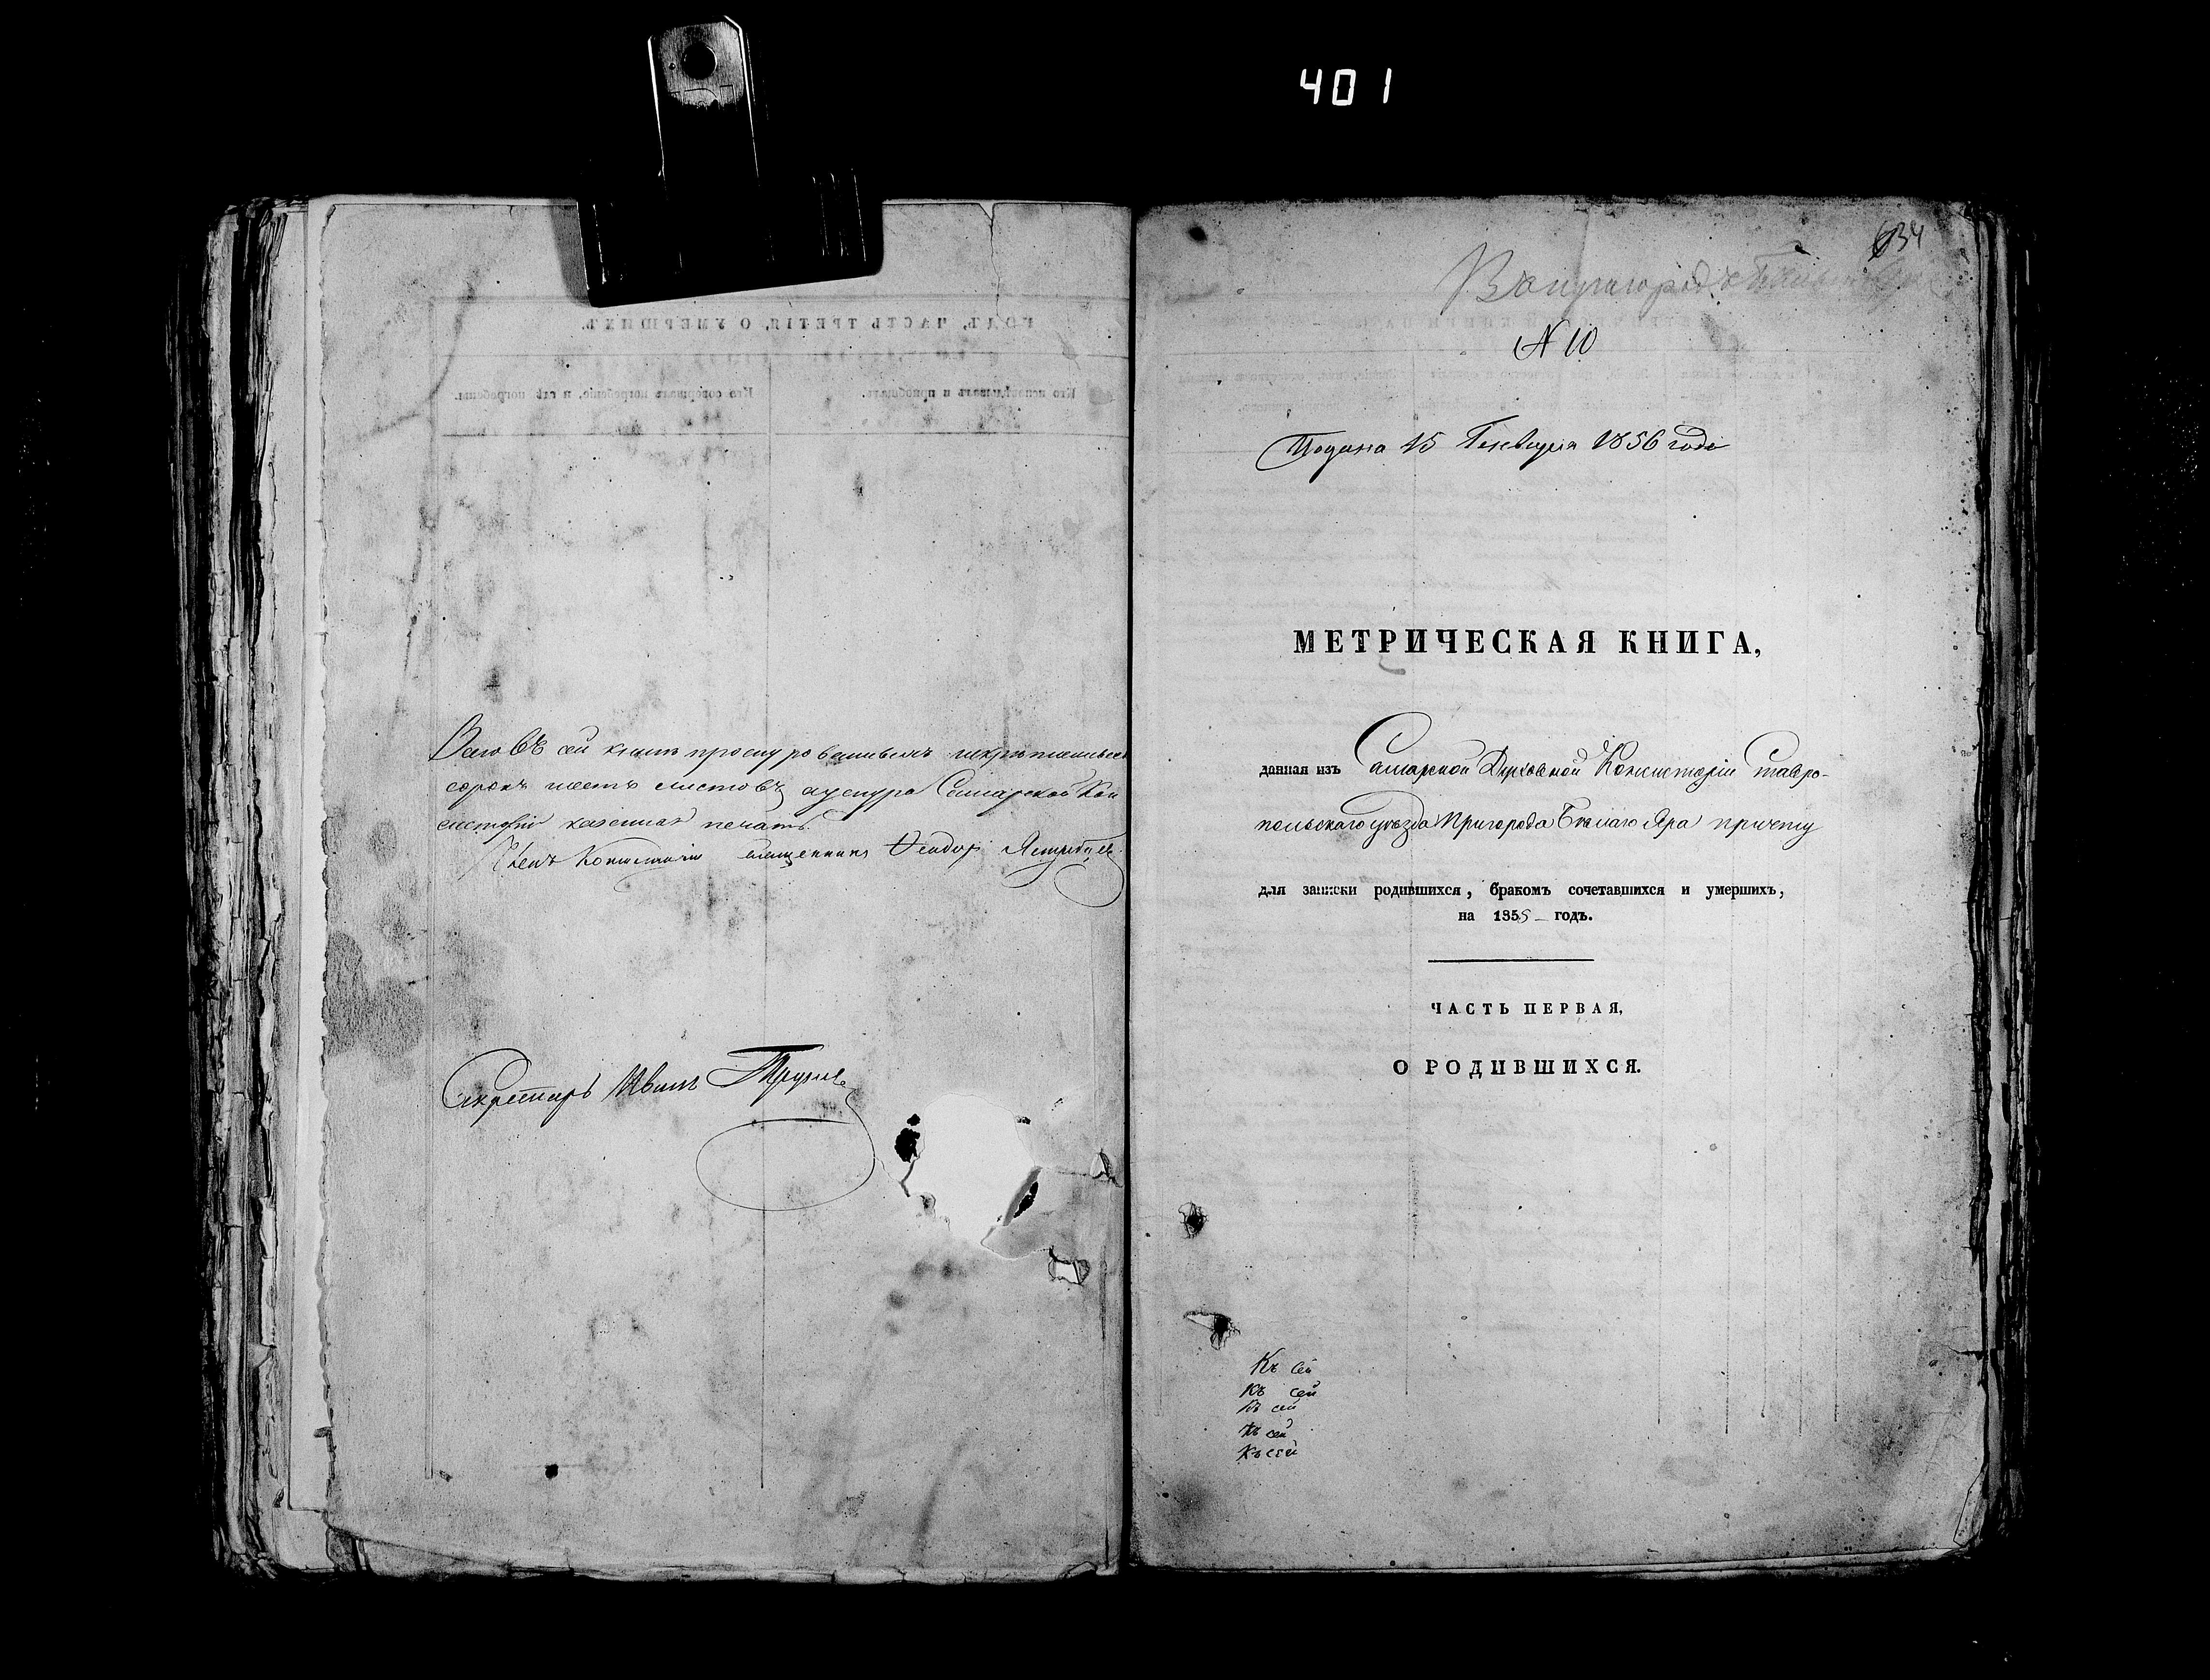 401
634
N 10
Подана 15 Генваря 1856 года
Всего въ сей книге прошнурованныхъ
сорокъ шесть листовъ, а у шнура Самарской Кон
систоріи казенная печать.
Членъ Консисторіи священникъ Ѳеодоръ
Секретарь Иванъ
МЕТРИЧЕСКАЯ КНИГА,
данная изъ Самарской Духовной Консисторіи Ставро-
польскаго уѣзда Пригорода Бѣлаго Яра причту
для записки родившихся, бракомъ сочетавшихся и умершихъ,
на 1855 годъ.
ЧАСТЬ ПЕРВАЯ,
О РОДИВШИХСЯ.
Къ сей
Къ сей
Къ сей
Къ сей
Къ сей
ГОДЪ, ЧАСТЬ ТРЕТІЯ, О УМЕРШИХЪ.
Кто исповѣдывалъ и пріобщалъ.
Кто совершалъ погребеніе, и гдѣ погребены.